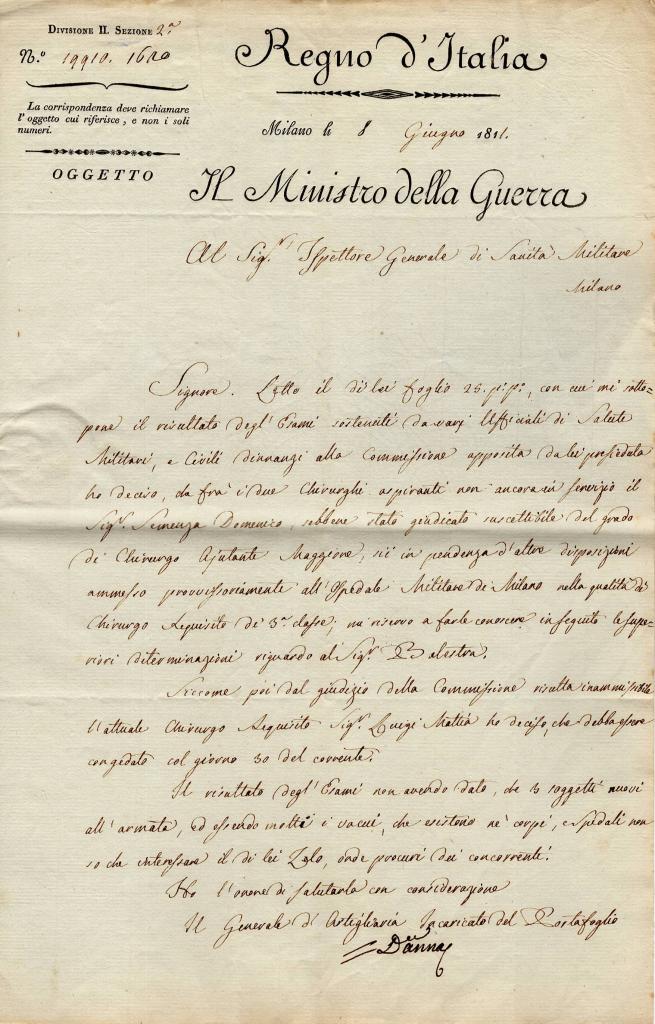 Divisione II. Sezione 2.ª
N.º 19910. 1620
La corrispondenza deve richiamare
l'oggetto cui riferisce, e non i soli
numeri.
OGGETTO
Regno d'Italia
Milano li 8 Giugno 1811.
Il Ministro della Guerra
Al Sig.r Ispettore Generale di Sanità Militare
Milano
Signore. Letto il di lei foglio 25. p.p., con cui mi sotto-
pone il risultato degl'Esami sostenuti da varj Uffiziali di Salute
Militari, e Civili dinnanzi alla Commissione apposita da lei presieduta
ho deciso, che frà i due Chirurghi aspiranti non ancora in servizio il
Sig.r Semenza Domenico, sebbene stato giudicato suscettibile del grado
di Chirurgo Ajutante Maggiore, sii in pendenza d'altre disposizioni
ammesso provvissoriamente all'Ospedale Militare di Milano nella qualità di
Chirurgo Requisito di 3.ª classe; mi riservo a farle conoscere in seguito le supe-
riori determinazioni riguardo al Sig.r Balestra.
Siccome poi dal giudizio della Commissione risulta inammissibile
l'attuale Chirurgo Requisito Sig.r Luigi Mattia ho deciso, che debba essere
congedato col giorno 30 del corrente.
Il risultato degl'Esami non avendo dato, che 3 soggetti nuovi
all'armata, ed essendo molti i vacui, che esistono ne' corpi, e Spedali non
so che interessare il di lei Zelo, onde procuri dei concorrenti.
Ho l'onore di salutarla con considerazione
Il Generale d'Artiglieria Incaricato del Portafoglio
Danna